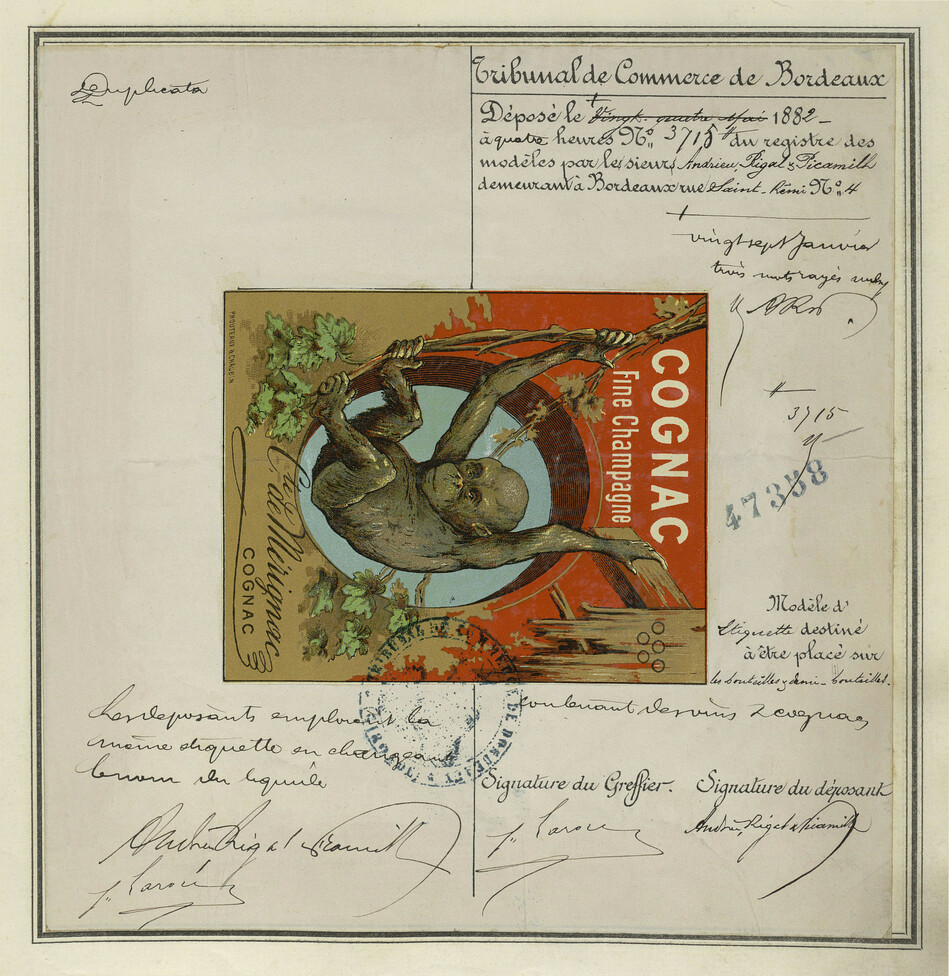 Duplicata
Tribunal de Commerce de Bordeaux
Déposé le Vingt-quatre Mai 1882 -
à quatre heures No. 3715 du registre des
modèles par les sieurs Andrieu, Rigal & Picamilh
demeurant à Bordeaux rue Saint-Rémi No. 4
vingt sept Janvier
trois mots rayés nuls
3715
47358
COGNAC
Fine Champagne
PROUTEAUX & CHAUBIN
Cie de Mérignac
COGNAC
Modèle d'
Etiquette destiné
à être placé sur
les bouteilles & demi-bouteilles.
contenant des vins & cognacs
Les déposants emploient la
même étiquette en changeant
le nom du liquide
TRIBUNAL DE COMMERCE DE BORDEAUX
Signature du Greffier.
Signature du déposant
Andrieu, Rigal & Picamilh
Andrieu, Rigal & Picamilh